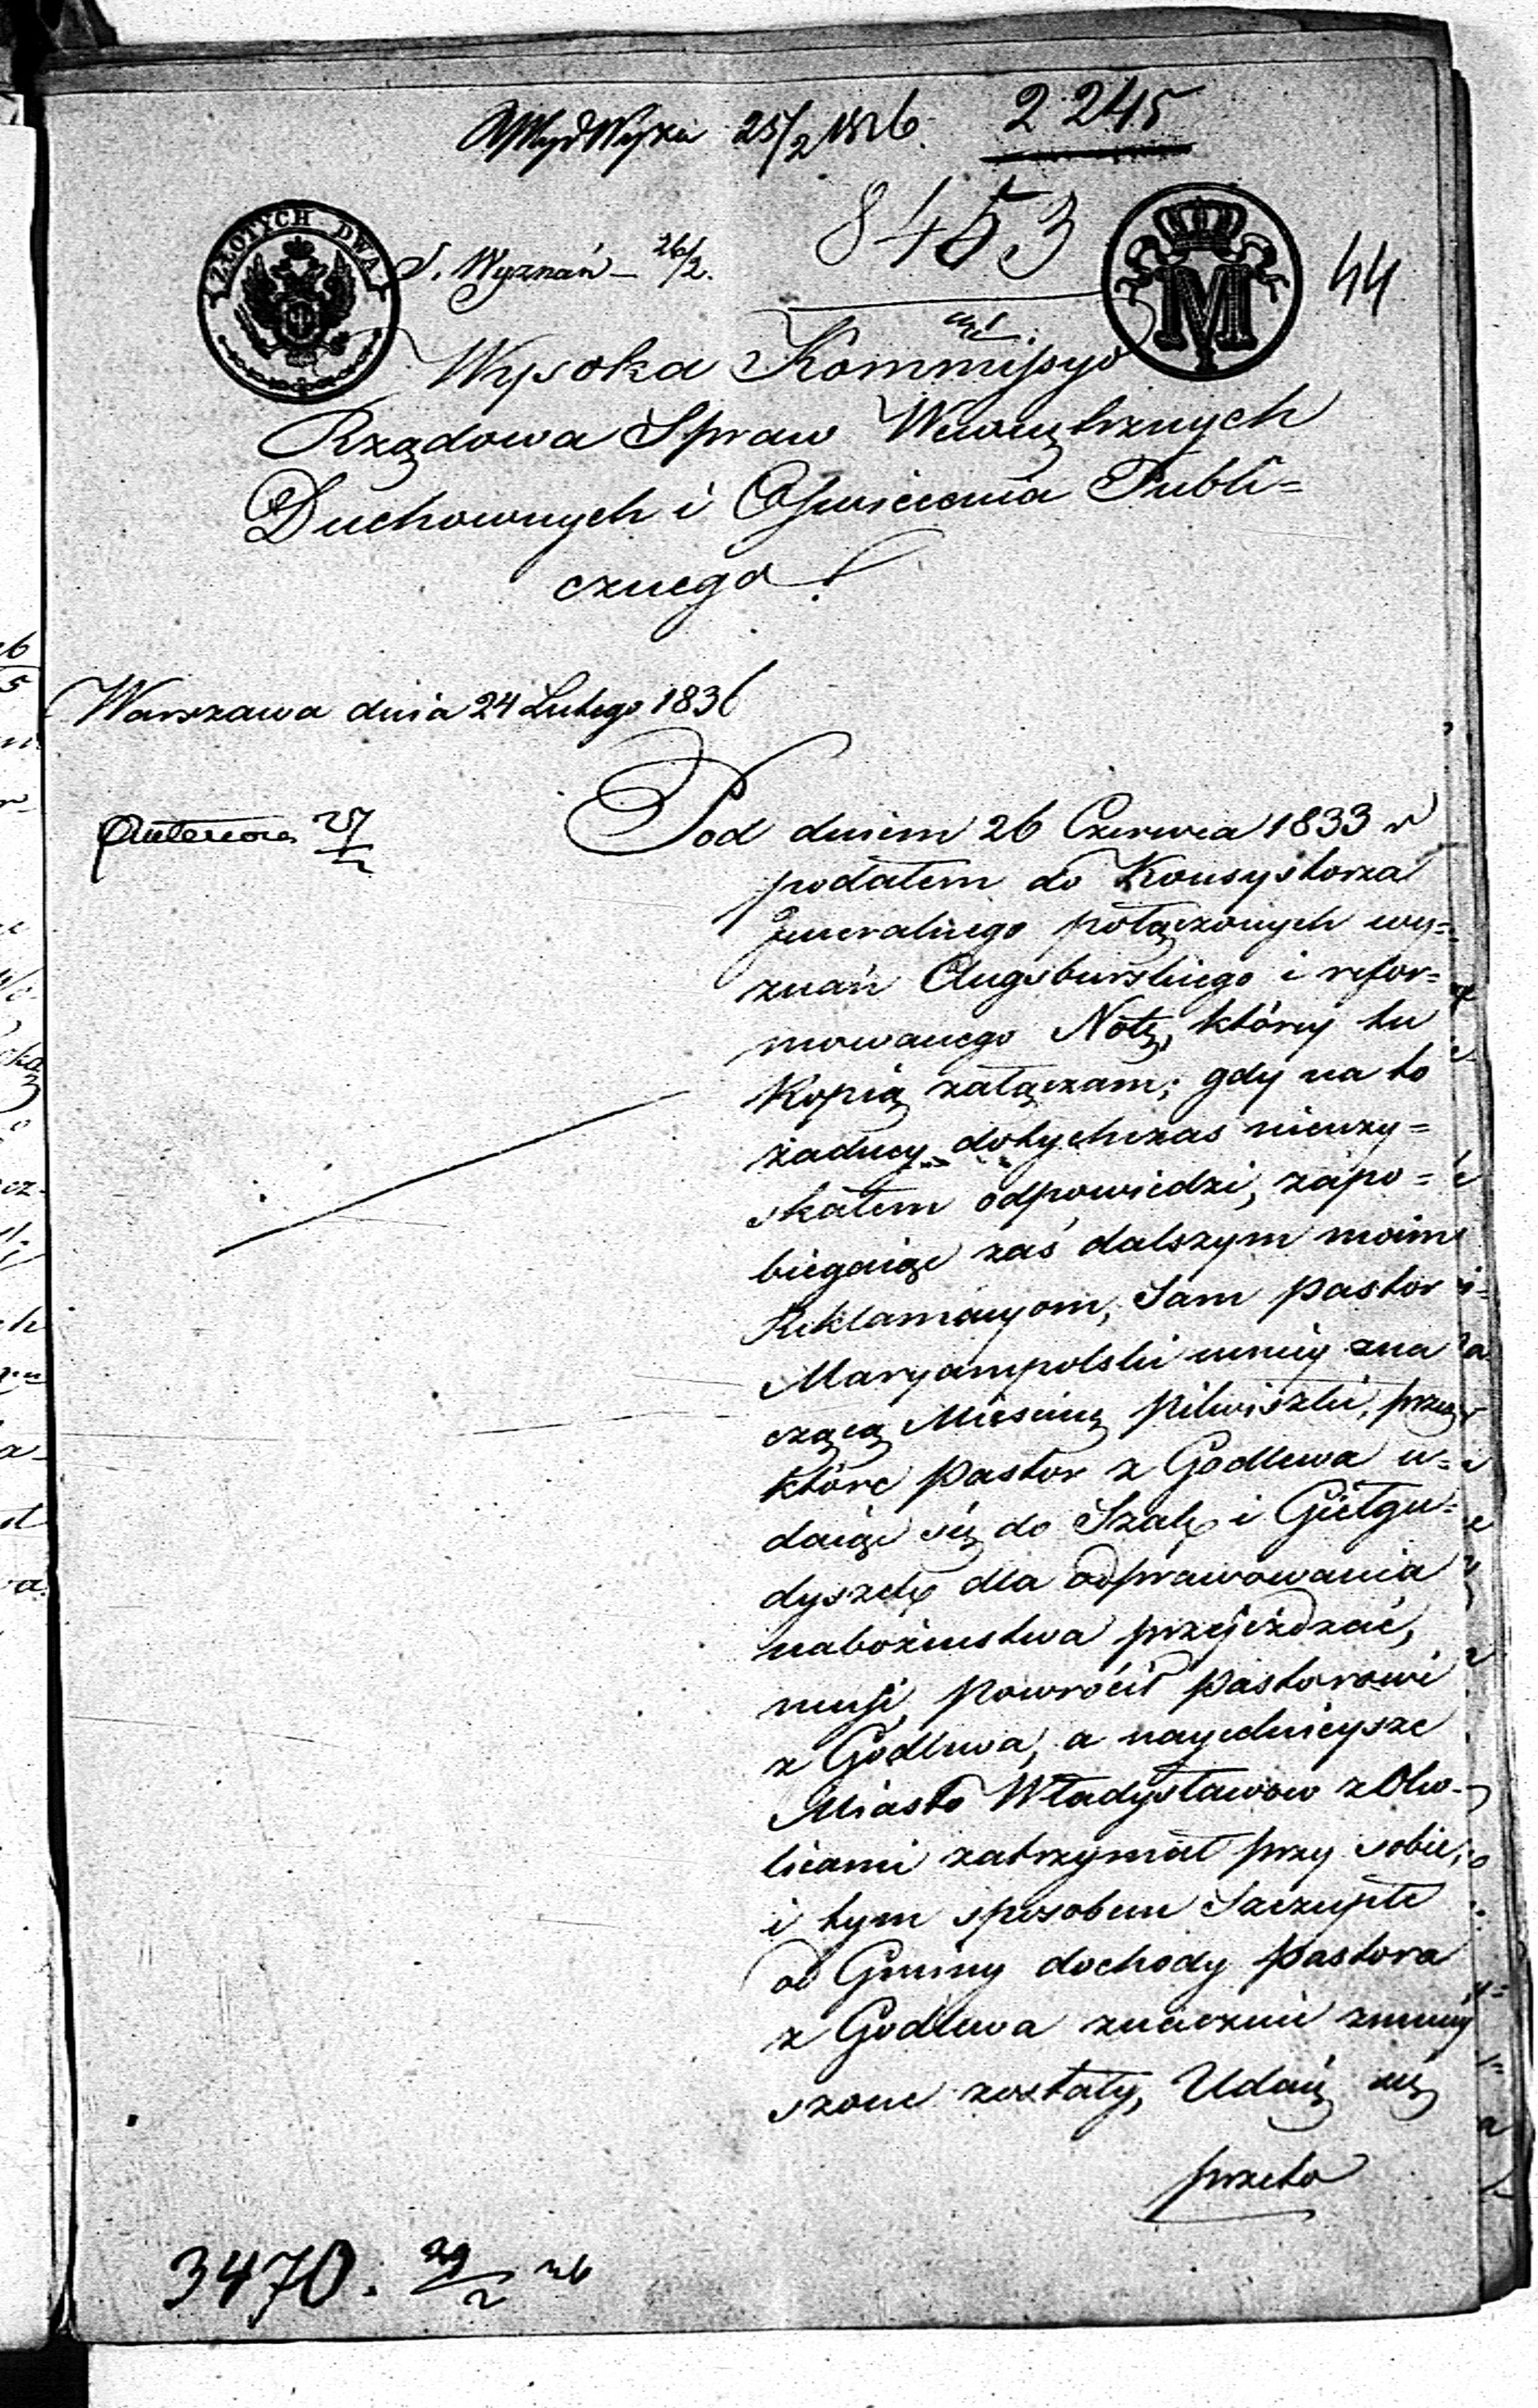 25/2 1836. 2245
8453
ZŁOTYCH DWA
S. Wyznań 26/2.
M
44
Wysoka Kommissyo
Rządowa Spraw Wewnętrznych
Duchownych i Oświecenia Publi=
cznego!
Warszawa dnia 24 Lutego 1836
Anteriora 27/2
Pod dniem 26 Czerwca 1833 r
podałem do Konsystorza
Jeneralnego połączonych wy=
znań Augsburskiego i refor=
mowanego Notę, któréy tu
Kopią załączam; gdy na to
żadnéy dotychczas nieuzy=
skałem odpowiedzi, zapo=
biegaiąc zaś dalszym moim
Reklamacyom, Sam pastor
Maryampolski mniéy zna
czącą Mieścinę Pilwiszki, przez
które Pastor z Godlewa u=
daiąc się do Szak i Giełgu=
dyszek dla odprawowania
nabożeństwa przejeżdzać,
musi, powrócił pastorowi
z Godlewa, a nayednieysze
Miasto Władysławow z Oko=
licami zatrzymał przy sobie,
i tym sposobem Szczupłe
od Gminy dochody pastora
z Godlewa znacznie zmniéy
szone zostały, Udaię się
przeto
3470. 29/2 36